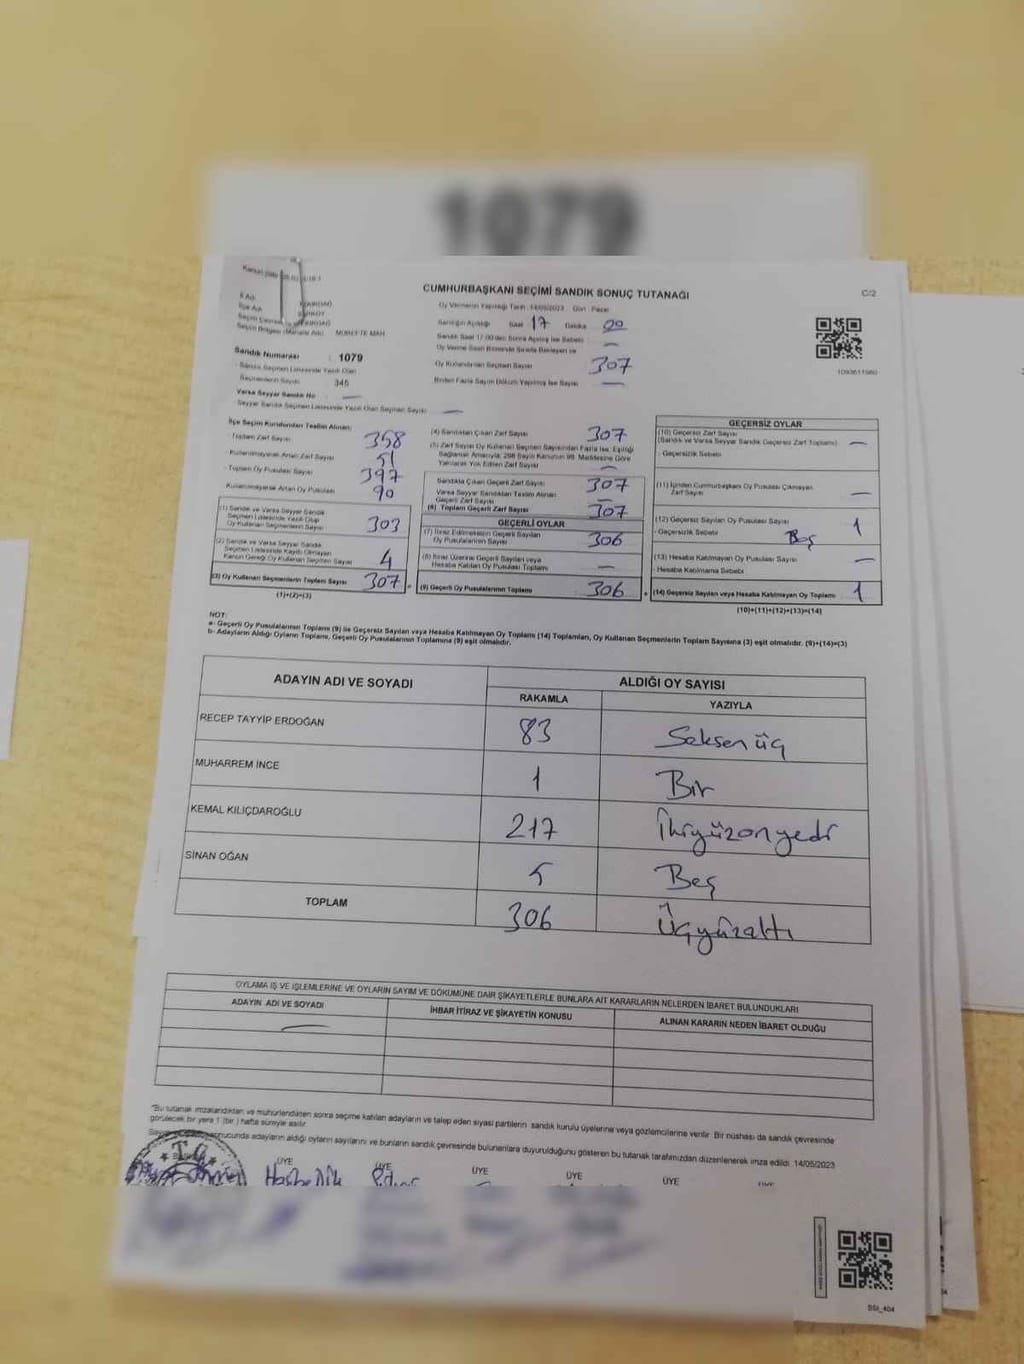 1079
CUMHURBAŞKANI SEÇİMİ SANDIK SONUÇ TUTANAĞI
C/2
Oy Vermenin Yapıldığı Tarih : 14/05/2023 Gün : Pazar
Sandığın Açıldığı Saat 17 Dakika 00
Sandık Saat 17:00'den Sonra Açılmış İse Sebebi —
Oy Verme Saati Bitiminde Sırada Bekleyen ve
Oy Kullandırılan Seçmen Sayısı 307
Birden Fazla Sayım Döküm Yapılmış İse Sayısı —
1093611980
İl Adı
İlçe Adı
Seçim Bölgesi (Mahalle Adı) MÜREFTE MAH.
Sandık Numarası : 1079
Sandık Seçmen Listesinde Yazılı Olan
Seçmenlerin Sayısı 345
Varsa Seyyar Sandık No —
- Seyyar Sandık Seçmen Listesinde Yazılı Olan Seçmen Sayısı —
İlçe Seçim Kurulundan Teslim Alınan;
- Toplam Zarf Sayısı 358
- Kullanılmayarak Artan Zarf Sayısı 51
- Toplam Oy Pusulası Sayısı 397
Kullanılmayarak Artan Oy Pusulası 90
(1) Sandık ve Varsa Seyyar Sandık
Seçmen Listesinde Yazılı Olup
Oy Kullanan Seçmenlerin Sayısı 303
(2) Sandık ve Varsa Seyyar Sandık
Seçmen Listesinde Kayıtlı Olmayan
Kanun Gereği Oy Kullanan Seçmen Sayısı 4
(3) Oy Kullanan Seçmenlerin Toplam Sayısı 307
(1)+(2)=(3)
(4) Sandıktan Çıkan Zarf Sayısı 307
(5) Zarf Sayısı Oy Kullanan Seçmen Sayısından Fazla İse, Eşitliği
Sağlamak Amacıyla, 298 Sayılı Kanunun 98. Maddesine Göre
Yakılarak Yok Edilen Zarf Sayısı —
Sandıkta Çıkan Geçerli Zarf Sayısı 307
Varsa Seyyar Sandıktan Teslim Alınan
Geçerli Zarf Sayısı —
(6) Toplam Geçerli Zarf Sayısı 307
GEÇERLİ OYLAR
(7) İtiraz Edilmeksizin Geçerli Sayılan
Oy Pusulalarının Sayısı 306
(8) İtiraz Üzerine Geçerli Sayılan veya
Hesaba Katılan Oy Pusulası Toplamı —
(9) Geçerli Oy Pusulalarının Toplamı 306
GEÇERSİZ OYLAR
(10) Geçersiz Zarf Sayısı
(Sandık ve Varsa Seyyar Sandık Geçersiz Zarf Toplamı) —
- Geçersizlik Sebebi
(11) İçinden Cumhurbaşkanı Oy Pusulası Çıkmayan
Zarf Sayısı —
(12) Geçersiz Sayılan Oy Pusulası Sayısı 1
- Geçersizlik Sebebi Boş
(13) Hesaba Katılmayan Oy Pusulası Sayısı —
- Hesaba Katılmama Sebebi
(14) Geçersiz Sayılan veya Hesaba Katılmayan Oy Toplamı 1
(10)+(11)+(12)+(13)=(14)
NOT:
a- Geçerli Oy Pusulalarının Toplamı (9) ile Geçersiz Sayılan veya Hesaba Katılmayan Oy Toplamı (14) Toplamları, Oy Kullanan Seçmenlerin Toplam Sayısına (3) eşit olmalıdır. (9)+(14)=(3)
b- Adayların Aldığı Oyların Toplamı, Geçerli Oy Pusulalarının Toplamına (9) eşit olmalıdır.
ADAYIN ADI VE SOYADI ALDIĞI OY SAYISI
RAKAMLA YAZIYLA
RECEP TAYYİP ERDOĞAN 83 Seksen üç
MUHARREM İNCE 1 Bir
KEMAL KILIÇDAROĞLU 217 İkiyüzonyedi
SİNAN OĞAN 5 Beş
TOPLAM 306 Üçyüzaltı
OYLAMA İŞ VE İŞLEMLERİNE VE OYLARIN SAYIM VE DÖKÜMÜNE DAİR ŞİKAYETLERLE BUNLARA AİT KARARLARIN NELERDEN İBARET BULUNDUKLARI
ADAYIN ADI VE SOYADI İHBAR İTİRAZ VE ŞİKAYETİN KONUSU ALINAN KARARIN NEDEN İBARET OLDUĞU
—
"Bu tutanak imzalandıktan ve mühürlendikten sonra seçime katılan adayların ve talep eden siyasi partilerin sandık kurulu üyelerine veya gözlemcilerine verilir. Bir nüshası da sandık çevresinde
görülecek bir yere 1 (bir ) hafta süreyle asılır.
sonucunda adayların aldığı oyların sayılarını ve bunların sandık çevresinde bulunanlara duyurulduğunu gösteren bu tutanak tarafımızdan düzenlenerek imza edildi. 14/05/2023
ÜYE ÜYE ÜYE ÜYE ÜYE ÜYE
SSI_404